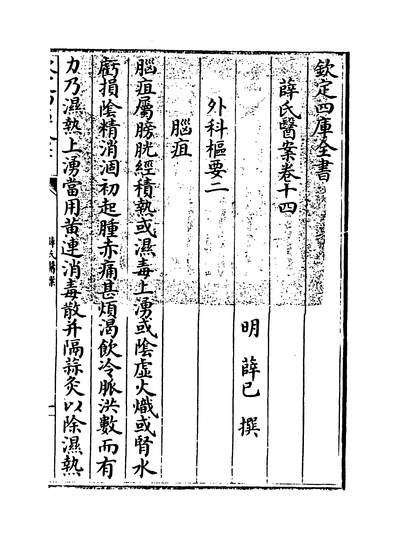 欽定四庫全書
薛氏醫案卷十四
明 薛己 撰
外科樞要二
腦疽
腦疽屬膀胱經積熱或濕毒上湧或陰虛火熾或腎水
虧損陰精消涸初起腫赤痛甚煩渴飲冷脈洪數而有
力乃濕熱上湧當用黄連消毒散并隔蒜灸以除濕熱
薛氏醫案